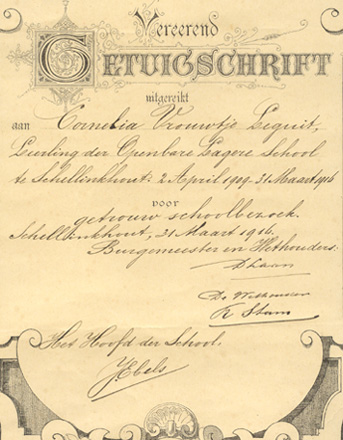 Vereerend
GETUIGSCHRIFT
uitgereikt
aan Cornelia Vrouwtje Lequit,
Leerling der Openbare Lagere School
te Schellinkhout: 2 April 1909-31 Maart 1916
voor
getrouw schoolbezoek.
Schellinkhout, 31 Maart 1916.
Burgemeester en Wethouders:
D Laan
De Wethouder
K Stam
Het Hoofd der School:
Ebels